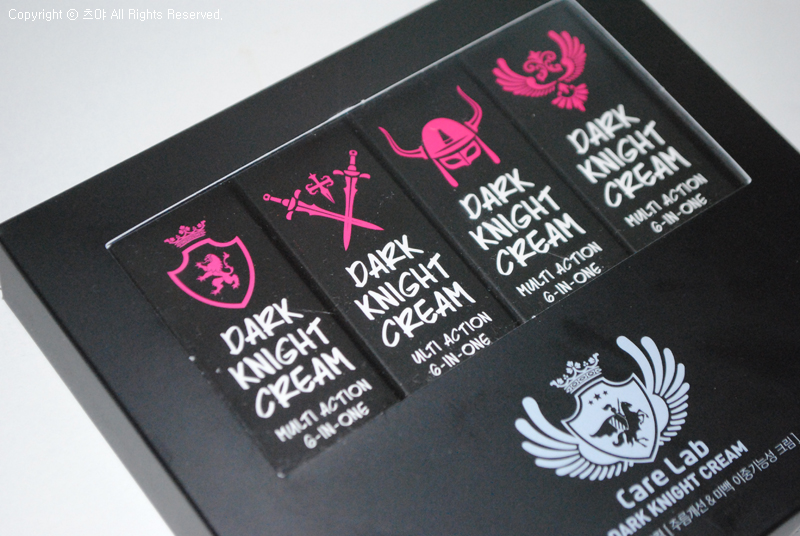 Copyright ⓒ 츠야 All Rights Reserved.
DARK
KNIGHT
CREAM
MULTI ACTION
6-IN-ONE
DARK
KNIGHT
CREAM
ULTI ACTION
6-IN-ONE
DARK
KNIGHT
CREAM
MULTI ACTION
6-IN-ONE
DARK
KNIGHT
CREAM
MULTI ACTION
6-IN-ONE
Care Lab
DARK KNIGHT CREAM
| 주름개선 & 미백 이중기능성 크림 |